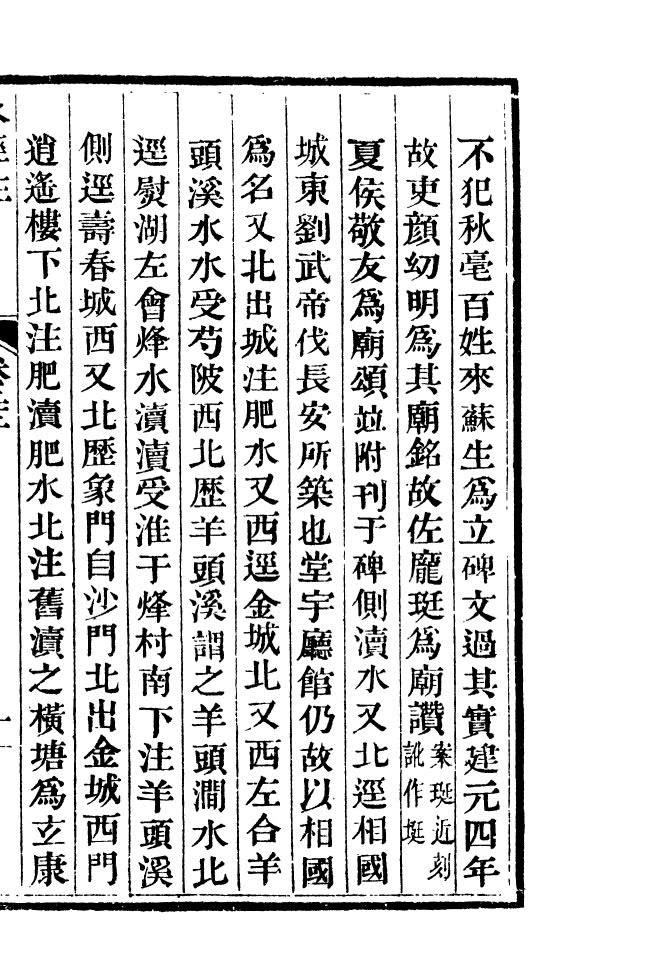 不犯秋毫百姓來蘇生爲立碑文過其實建元四年
故吏顔幼明爲其廟銘故佐龐珽爲廟讚案珽近刻訛作埏
夏侯敬友爲廟頌並附刊于碑側瀆水又北逕相國
城東劉武帝伐長安所築也堂宇廳館仍故以相國
爲名又北出城注肥水又西逕金城北又西左合羊
頭溪水水受芍陂西北歴羊頭溪謂之羊頭澗水北
逕熨湖左會烽水瀆瀆受淮于烽村南下注羊頭溪
側逕壽春城西又北歷象門自沙門北出金城西門
逍遙樓下北注肥瀆肥水北注舊瀆之橫塘爲玄康
水經注